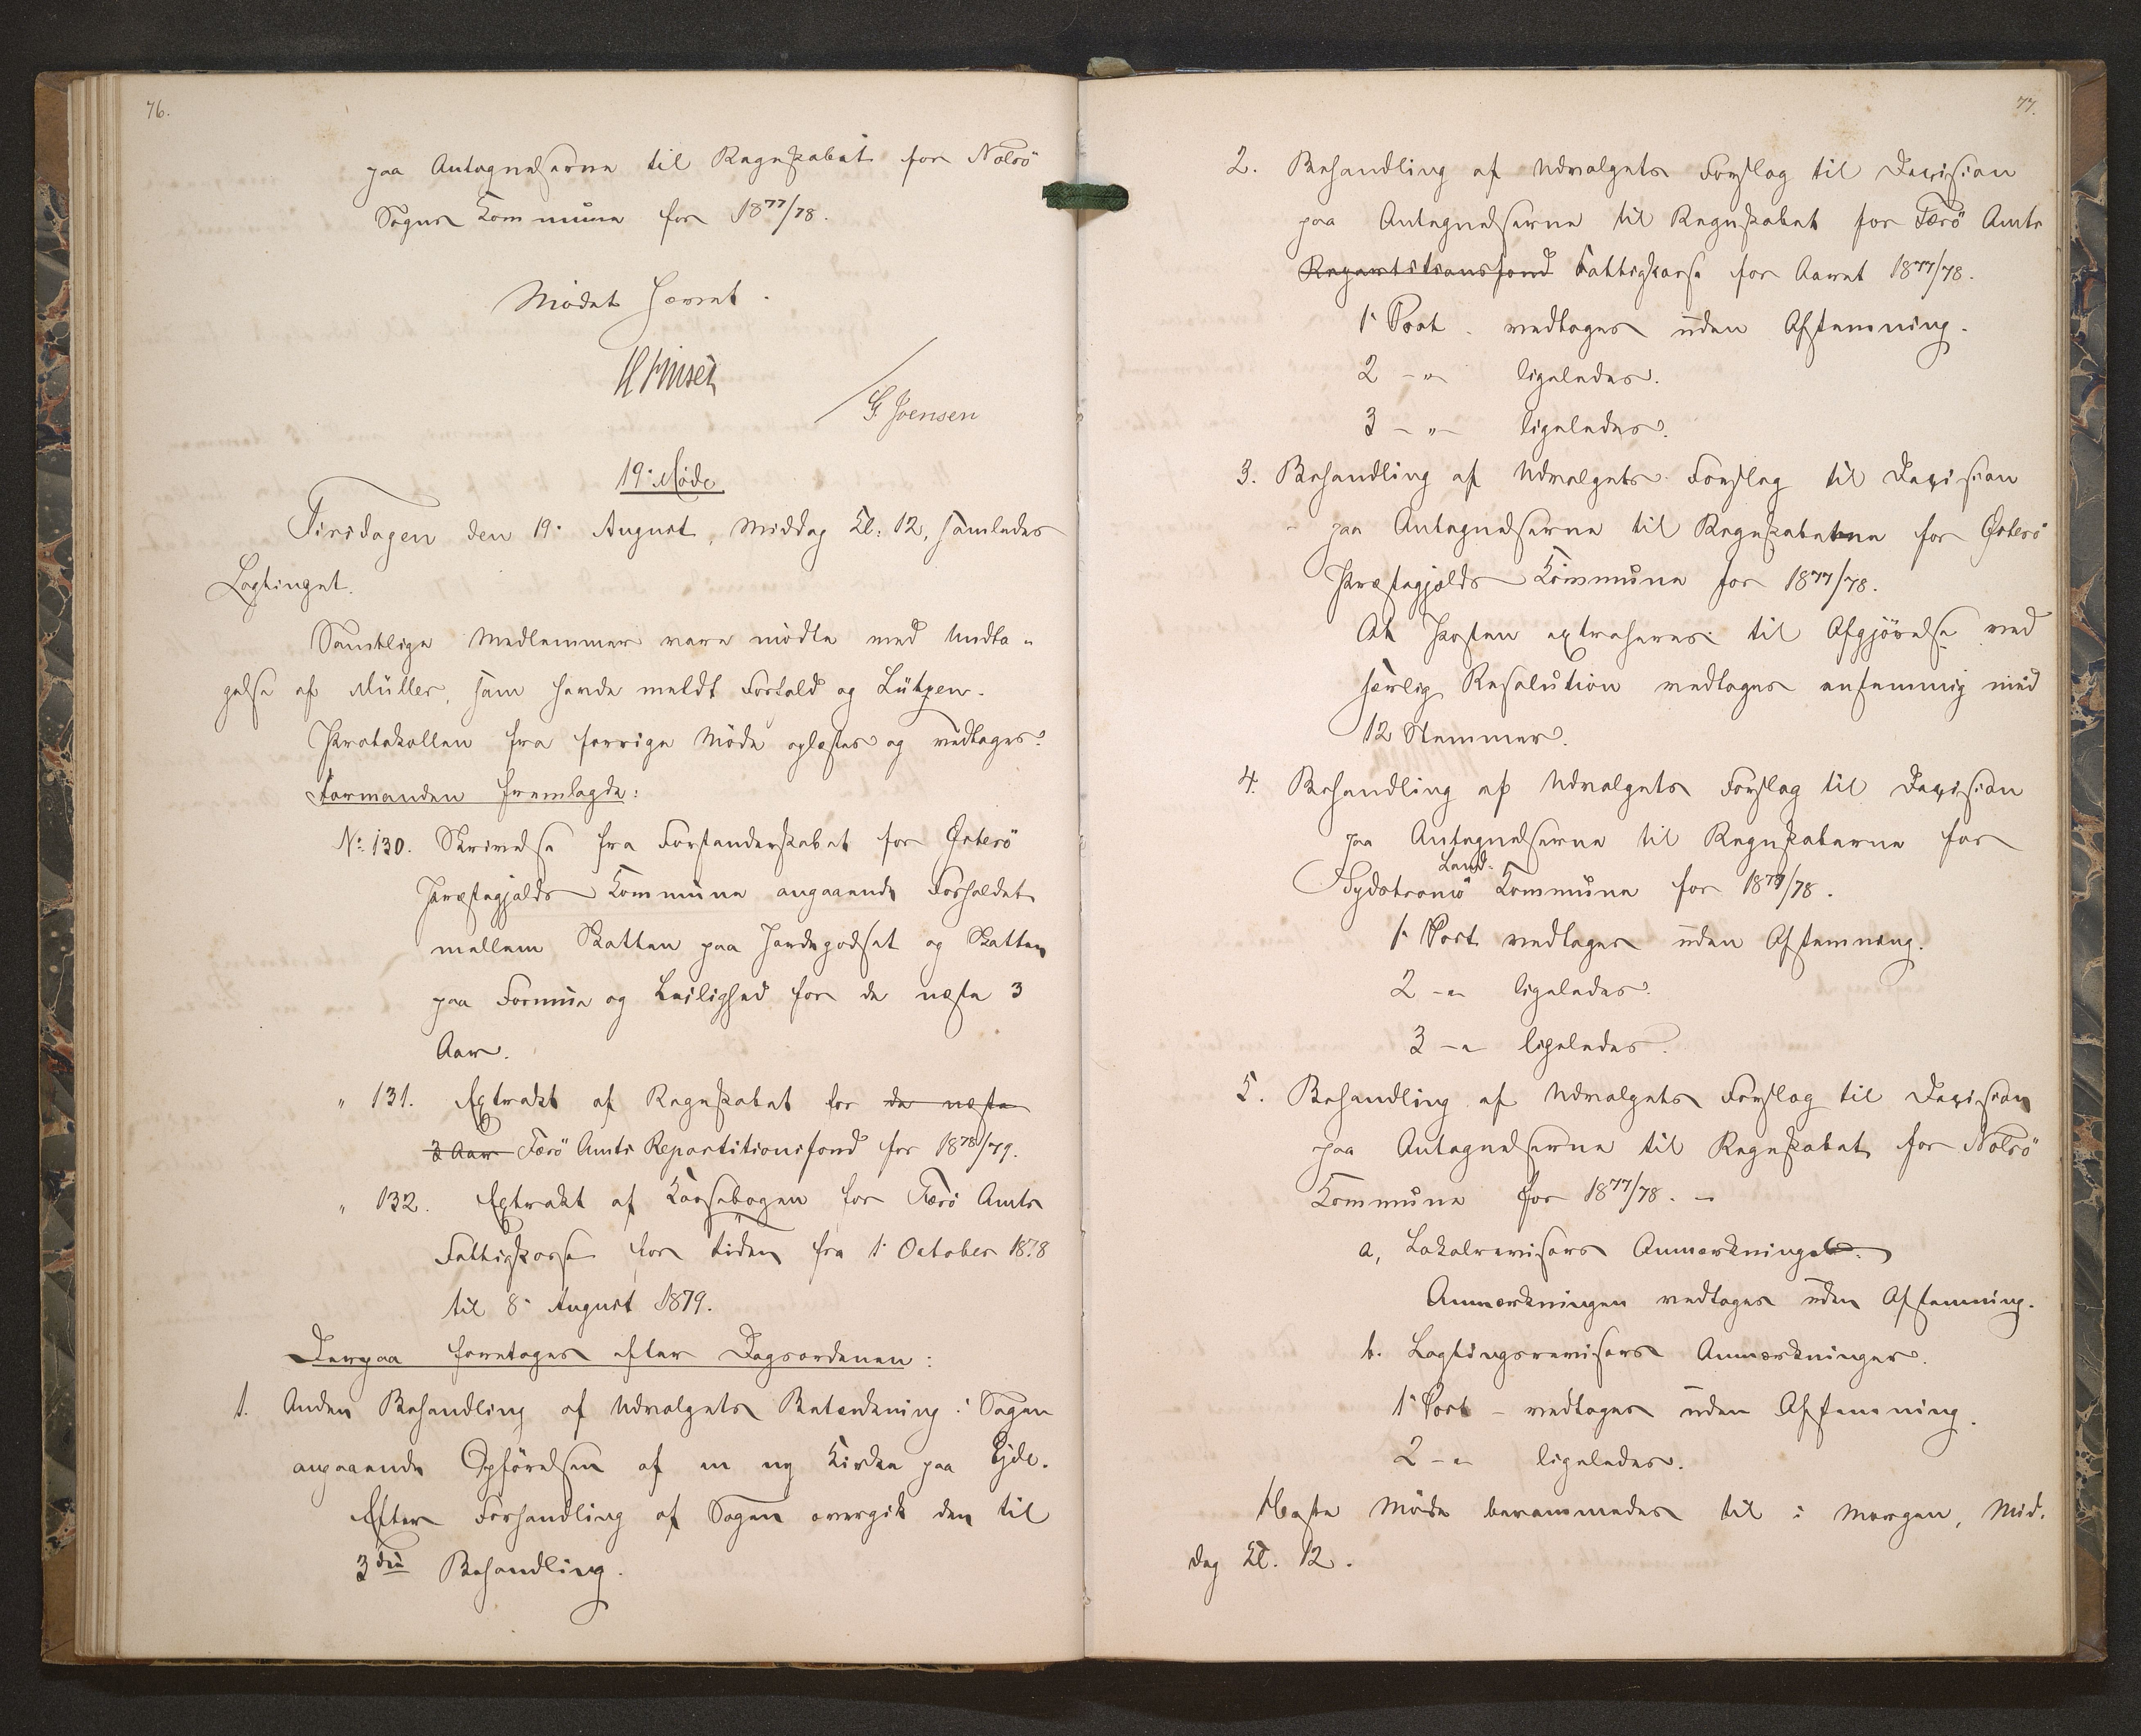 76.
paa Antegnelserne til Regnskabet for Nolsö
Sogns Kommune for 1877/78.
Mødet hævet.
H Finsen
G. Joensen
19. Møde
Tirsdagen den 19. August, Middag Kl. 12, samledes
Lagtinget.
Samtlige Medlemmer vare mödte med Undta-
gelse af Müller, som havde meldt Forfald og Lützen.
Protokollen fra forrige Möde oplæstes og vedtoges.
Formanden fremlagde:
No. 130. Skrivelse fra Forstanderskabet for Österö
Præstegjelds Kommune angaaende Forholdet
mellem Skatten paa Jordegodset og Skatten
paa Formue og Leilighed for de næste 3
Aar.
" 131. Extrakt af Regnskabet for de næste
3 Aar Færö Amts Repartitionsfond for 1878/79.
" 132. Extrakt af Kassebogen for Færö Amts
Fattigkasse for tiden fra 1. October 1878
til 8. August 1879.
Derpaa foretoges efter Dagsordenen:
1. Anden Behandling af Udvalgets Betænkning i Sagen
angaaende Opförelsen af en ny Kirke paa Ejde.
Efter Forhandling af Sagen overgik den til
3die Behandling.
77.
2. Behandling af Udvalgets Forslag til Decision
paa Antegnelserne til Regnskabet for Færö Amts
Repartitionsfond Fattigkasse for Aaret 1877/78.
1. Post. vedtoges uden Afstemning.
2 - " - ligeledes.
3 - " - ligeledes.
3. Behandling af Udvalgets Forslag til Decision
paa Antegnelserne til Regnskabet for Österö
Præstegjelds Kommune for 1877/78.
At Posten extraheres til Afgjörelse ved
særlig Resolution vedtoges enstemmig med
12 Stemmer.
4. Behandling af Udvalgets Forslag til Decision
paa Antegnelserne til Regnskaberne for
Land-
Sydströmö Kommune for 1877/78.
1. Post vedtoges uden Afstemning.
2 - " - ligeledes.
3 - " - ligeledes.
5. Behandling af Udvalgets Forslag til Decision
paa Antegnelserne til Regnskabet for Nolsö
Kommune for 1877/78. -
a, Lokalrevisors Anmærkninger.
Anmærkningen vedtoges uden Afstemning.
b. Lagtingsrevisors Anmærkninger.
1. Post - vedtoges uden Afstemning.
2 - " - ligeledes.
Næste Möde berammedes til i Morgen, Mid-
dag Kl. 12.